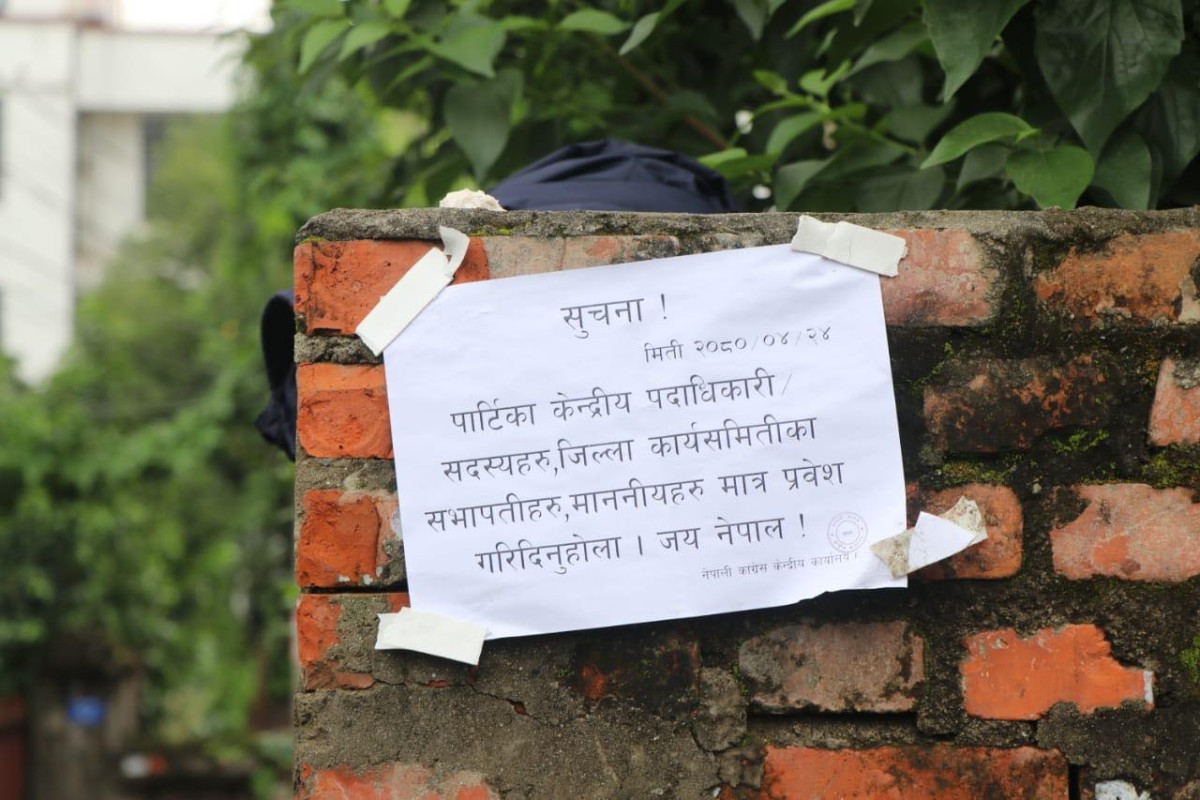 सुचना !
मिती २०८०/०४/२४
पार्टिका केन्द्रीय पदाधिकारी/
सदस्यहरु,जिल्ला कार्यसमितीका
सभापतीहरु,माननीयहरु मात्र प्रवेश
गरिदिनुहोला । जय नेपाल !
नेपाली काग्रेस केन्द्रीय कार्यालय ।